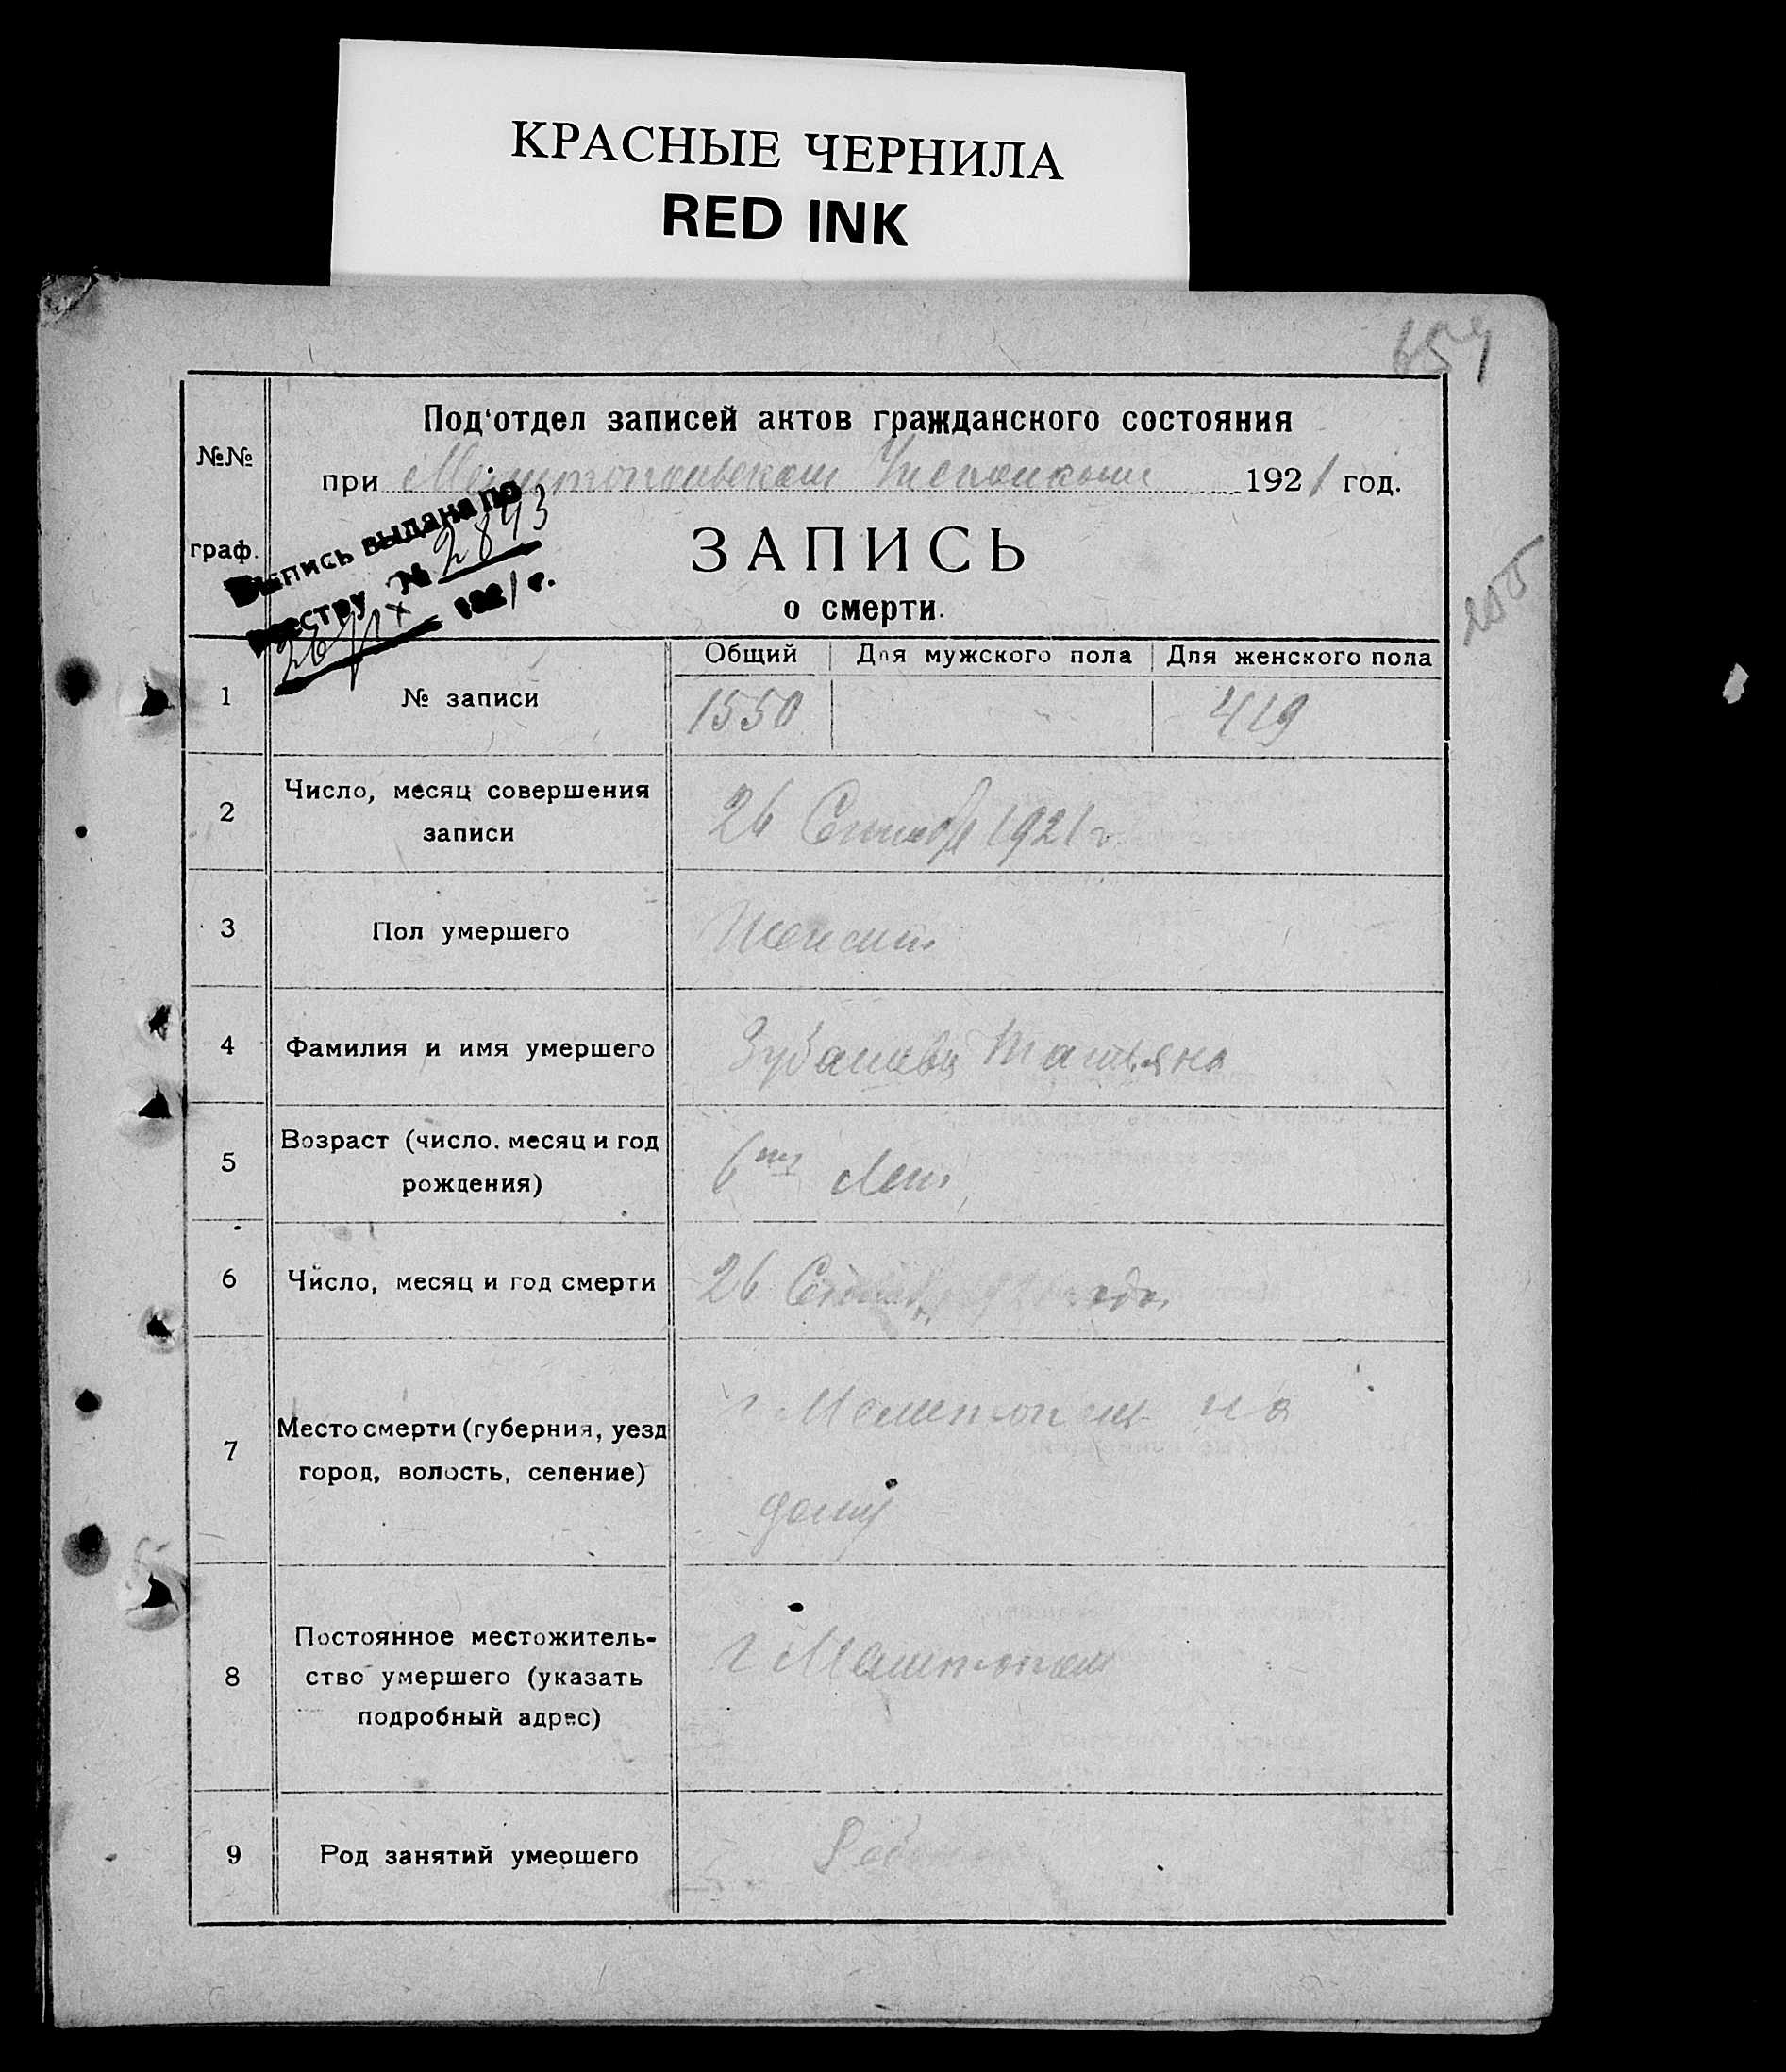 КРАСНЫЕ ЧЕРНИЛА
RED INK
454
Под'отдел записей актов гражданского состояния
№№
при Мелитопольском 1921 год.
граф.
Выпись выдана по
реестру № 2893
26/IX 1921 г.
ЗАПИСЬ
о смерти.
Общий Для мужского пола Для женского пола
1 № записи 1550 419
2 Число, месяц совершения
записи
26 Сентябр 1921 г.
3 Пол умершего
4 Фамилия и имя умершего Татьяна
5 Возраст (число, месяц и год
рождения)
6 лет
6 Число, месяц и год смерти 26
7 Место смерти (губерния, уезд
город, волость, селение)
г Мелитополь на
дому
8 Постоянное местожитель-
ство умершего (указать
подробный адрес)
г Мелитополь
9 Род занятий умершего